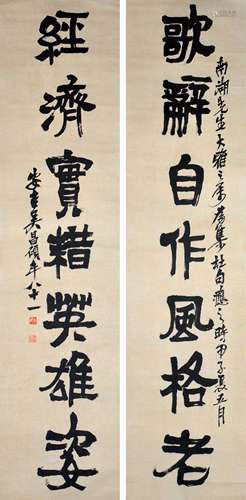 歌辭自作風格老
南湖先生大雅之屬為集杜句應之時甲子長五月
經濟實藉英雄姿
安吉吳昌碩年八十一